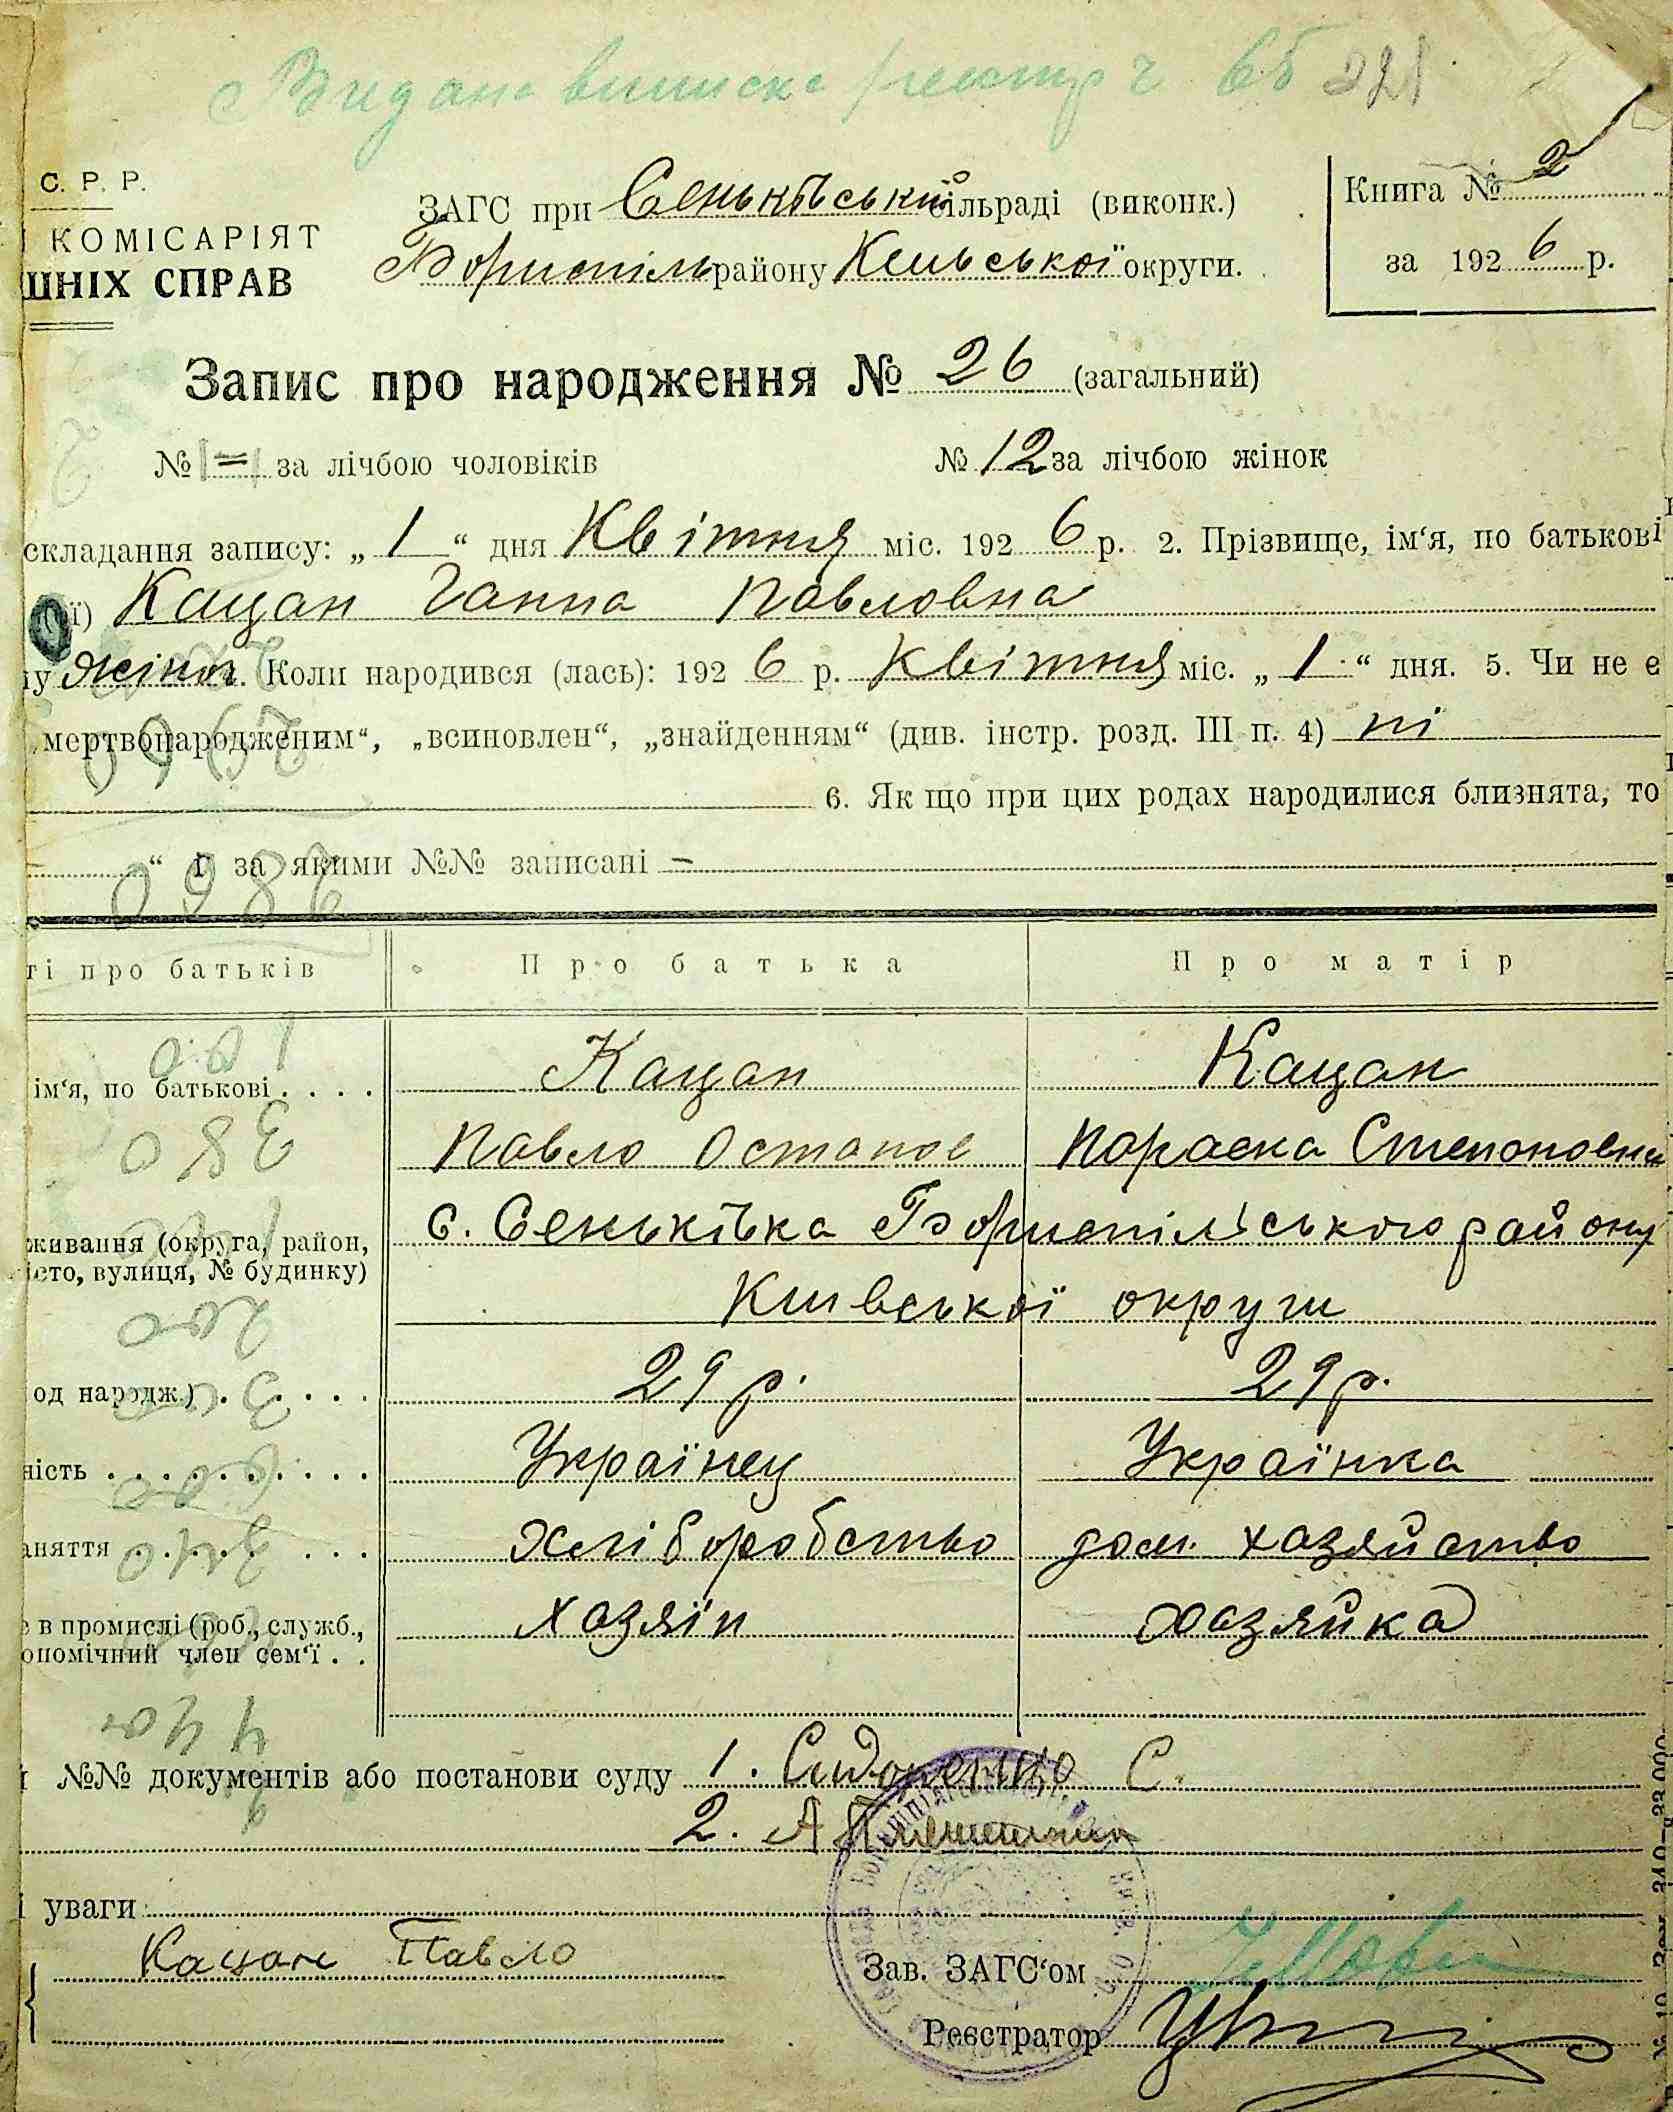 Видана виписка реєстр ч 65 321
С. Р. Р.
КОМІСАРІЯТ
ШНІХ СПРАВ
ЗАГС при Сеньківській сільраді (виконк.)
Бориспіль району Київської округи.
Книга № 2
за 1926 р.
Запис про народження № 26 (загальний)
№ = за лічбою чоловіків № 12 за лічбою жінок
складання запису: „ 1 “ дня Квітня міс. 1926 р. 2. Прізвище, ім‘я, по батькові
ї) Кацан Ганна Павловна
жіноч. Коли народився (лась): 1926 р. Квітня міс. „ 1 “ дня. 5. Чи не є
„мертвонародженим“, „всиновлен“, „знайденням“ (див. інстр. розд. III п. 4) ні
6. Як що при цих родах народилися близнята, то
“ і за якими №№ записані –
ті про батьків Про батька Про матір
Кацан Кацан
ім‘я, по батькові . . . .
Павло Остапов Параска Степановна
с. Сеньківка Бориспільського району
живання (округа, район,
істо, вулиця, № будинку)
Київської округи
од народж.) . . . . . 29 р. 29 р.
ність . . . . . . . . . . Українец Українка
аняття . . . . . . . Хліборобство дом. хазяйство
в промислі (роб., служб., хазяїн хазяйка
ономічний член сем‘ї . .
№№ документів або постанови суду 1. Сидоренко С.
2. А
і уваги
Кацан Павло
Зав. ЗАГС‘ом
Реєстратор